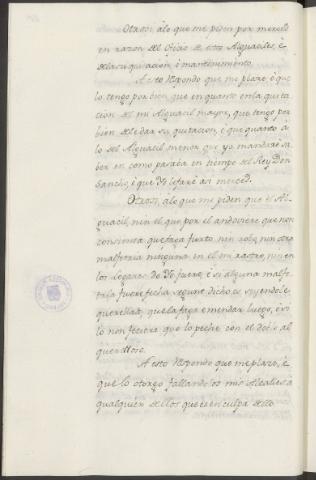 Otrosi, àlo que me piden por merced
en razon del Oficio de estos Alguaciles, è
de la su quitacion, è mantenimiento.
A esto Respondo que me plaze, è que
lo tengo por bien, que en quanto en la quita
cion del mi Alguacil mayor, que tengo por
bien de le dar su quitacion, è que quanto à
lo del Alguacil menor que yo mandarè sa
ber en como pasaba en tiempo del Rey Don
Sancho, è que Yo le farè asi merced.
Otrosi, alo que me piden que el Al
guacil, nin el que por el andoviere que non
consienta que faga furto, nin robo, nin otra
malfetria ninguna en el mi rastro, nin en
los logares do Yo fuere, è si alguna malfe
tria fuere fecha segunt dicho es, seyendole
querellado, que la faga emendar luego, è si
lo non ficiere que lo peche con el doblo al
querelloso.
A esto Respondo que me plaze, è
que lo otorgo, fallandolos mios Alcaldes a
qualquier dellos que es en culpa dello.